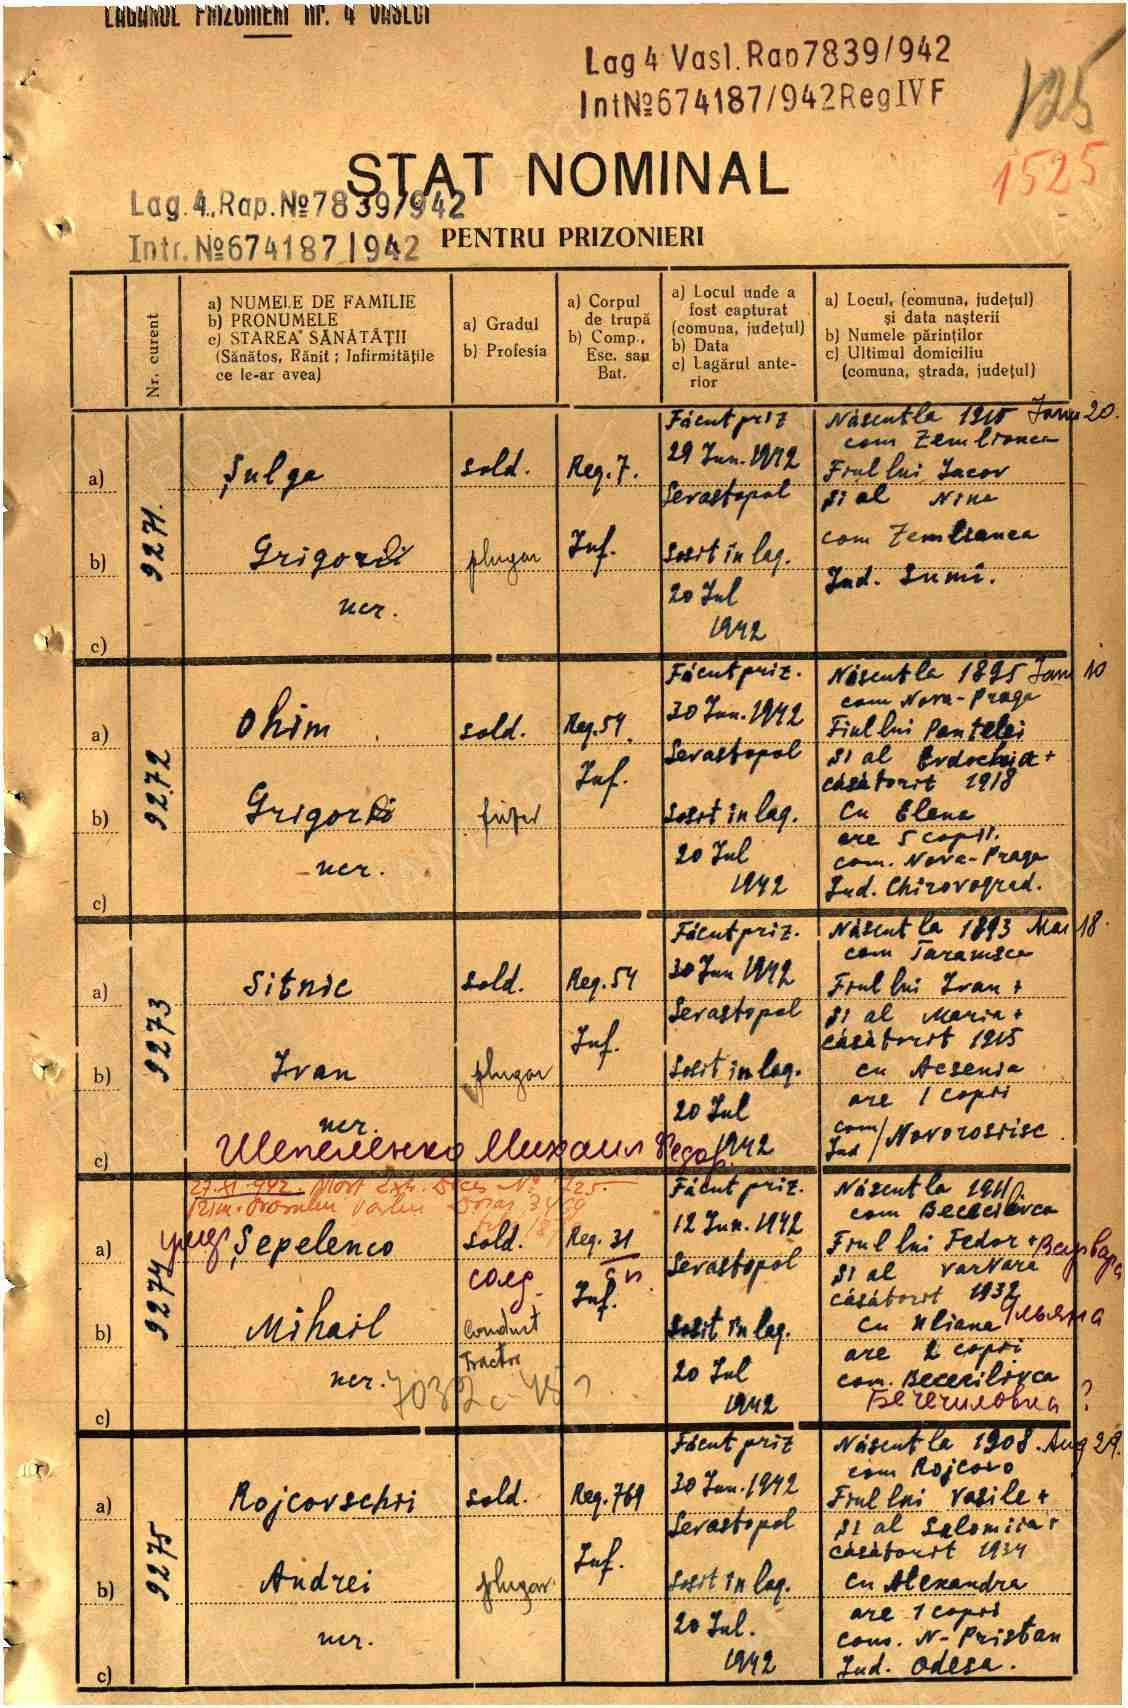 LAGĂRUL PRIZONIERI NR. 4 VASLUI
Lag 4 Vasl. Rap 7839/942
Int № 674187/942 Reg IV F
125
1525
STAT NOMINAL
Lag. 4., Rap. № 7839/942
Intr. № 674187/942
PENTRU PRIZONIERI
Nr. curent
a) NUMELE DE FAMILIE
b) PRONUMELE
c) STAREA SĂNĂTĂȚII
(Sănătos, Rănit; Infirmitățile
ce le-ar avea)
a) Gradul
b) Profesia
a) Corpul
de trupă
b) Comp.,
Esc. sau
Bat.
a) Locul unde a
fost capturat
(comuna, județul)
b) Data
c) Lagărul ante-
rior
a) Locul, (comuna, județul)
și data nașterii
b) Numele părinților
c) Ultimul domiciliu
(comuna, strada, județul)
9271.
a) Șulga
b) Grigorii
ner.
c)
sold.
plugar
Reg. 7.
Inf.
Făcut priz
29 Iun. 1942
Sevastopol
Sosit în lag.
20 Iul
1942
Născut la 1910 Ianu 20.
com Zemlianca
Fiul lui Iacov
și al Nina
com Zemlianca
Jud. Sumi.
9272
a) Ohim
b) Grigorii
ner.
c)
sold.
Reg. 54
Inf.
Făcut priz.
30 Iun. 1942
Sevastopol
Sosit în lag.
20 Iul
1942
Născut la 1895 Ianu 10
com Nova-Praga
Fiul lui Pantelei
și al Evdochia +
căsătorit 1918
Cu Elena
are 5 copii.
com. Nova-Praga
Jud. Chirovograd.
9273
a) Sitnic
b) Ivan
ner.
c)
sold.
plugar
Reg. 54
Inf.
Făcut priz.
30 Iun 1942
Sevastopol
Sosit în lag.
20 Iul
1942
Născut la 1893 Mai 18.
com Taramsca
Fiul lui Ivan +
și al Maria +
căsătorit 1915
cu Acsenia
are 1 copii
com/Jud Novorossisc
Шепеленко Михаил Федор.
27.XI 942. Mort
9274
a) умер Șepelenco
b) Mihail
ner. 7032
c)
sold.
солд.
Conduct
Tractor
Reg. 31
сп
Inf.
Făcut priz.
12 Iun. 1942
Sevastopol
Sosit în lag.
20 Iul
1942
Născut la 1911
com Bececilovca
Fiul lui Fedor + Варвара
și al Varvara
căsătorit 1932
cu Uliana Ульяна
are 2 copii
com. Bececilovca
Бечечиловка ?
9275
a) Rojcovschii
b) Andrei
ner.
c)
sold.
plugar
Reg. 769
Inf.
Făcut priz
30 Iun. 1942
Sevastopol
Sosit în lag.
20 Iul.
1942
Născut la 1908. Aug 29.
com Rojcovo
Fiul lui Vasile +
și al Salomiia +
căsătorit 1934
cu Alexandra
are 1 copii
com. N-Pristan
Jud. Odesa.